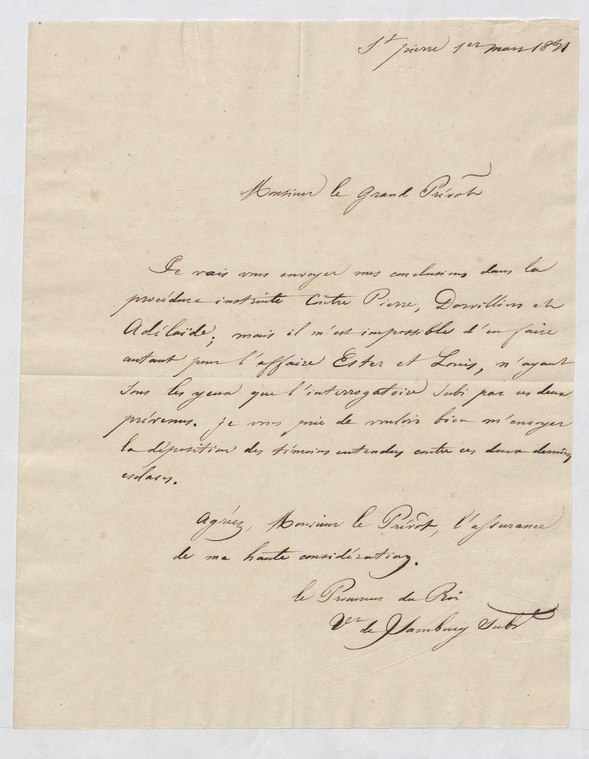 St pierre 1er mars 1831
Monsieur le Grand Prévôt
Je vais vous envoyer mes conclusions dans la
procédure instruite contre Pierre, Dorvillien et
Adélaïde; mais il m'est impossibles d'en faire
autant pour l'affaire Ester et Louis, n'ayant
sous les yeux que l'interrogatoire subi par ces deux
prévenus. je vous prie de vouloir bien m'envoyer
la déposition des témoins entendus contre ces deux derniers
esclaves.
Agréez, Monsieur le Prévôt, l'assurance
de ma haute considération.
le Procureur du Roi
de Subt